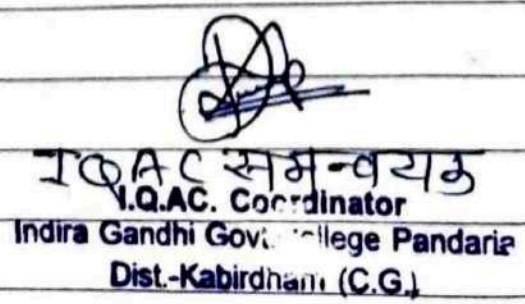 IQAC समन्वयक
I.Q.AC. Coordinator
Indira Gandhi Govt. College Pandaria
Dist.-Kabirdham (C.G.)